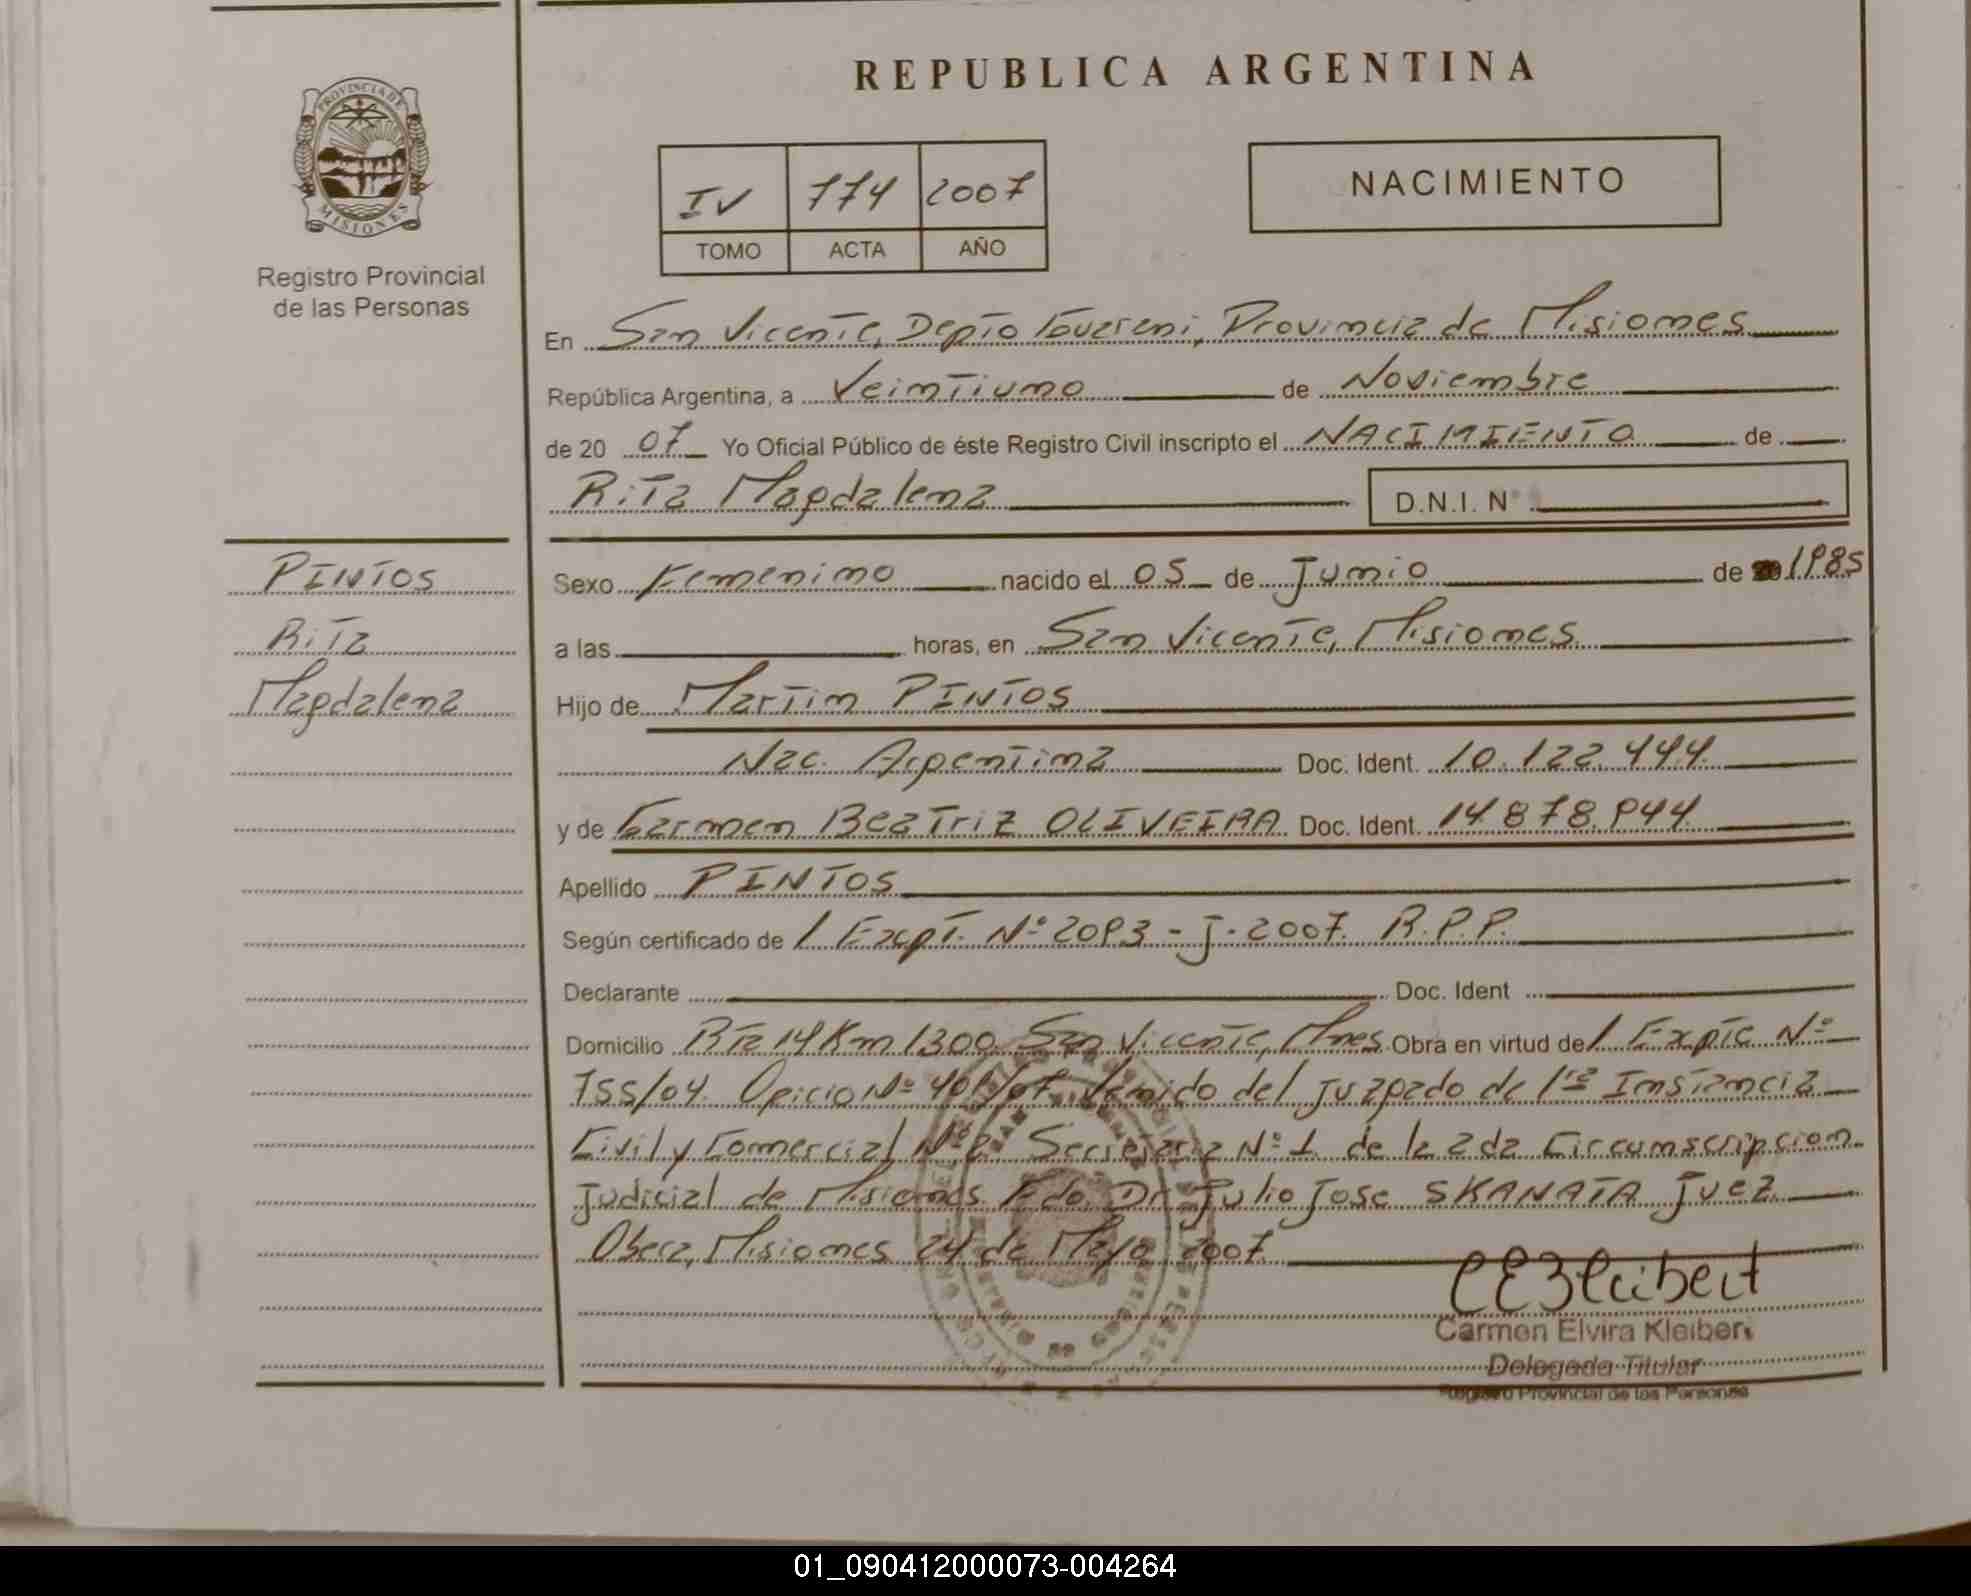 REPUBLICA ARGENTINA
PROVINCIA DE
MISIONES
Registro Provincial
de las Personas
IV 774 2007
TOMO ACTA AÑO
NACIMIENTO
En San Vicente, Depto Guarani, Provincia de Misiones
República Argentina, a Veintiuno de Noviembre
de 20 07 Yo Oficial Público de éste Registro Civil inscripto el NACIMIENTO de
Rita Magdalena D.N.I. Nº
PINTOS
Rita
Magdalena
Sexo Femenino nacido el 05 de Junio de 1985
a las horas, en San Vicente, Misiones
Hijo de Martin PINTOS
Nac. Argentina Doc. Ident. 10.122.444
y de Carmen Beatriz OLIVEIRA Doc. Ident. 14.878.944
Apellido PINTOS
Según certificado de / Expt. Nº 2093-J-2007. R.P.P.
Declarante Doc. Ident
Domicilio Rta 14 Km 1300 San Vicente, Mnes Obra en virtud de / Expte Nº
755/04. Oficio Nº del Juzgado de 1ra Instancia
Civil y Comercial Nº 2 Secretaria Nº 1 de la 2da Circunscripcion
Judicial de Misiones Fdo. Dr. Julio Jose SKANATA Juez
Obera, Misiones 24 de Mayo 2007
CEKleibert
Carmen Elvira Kleibert
Delegada Titular
Registro Provincial de las Personas
01_090412000073-004264